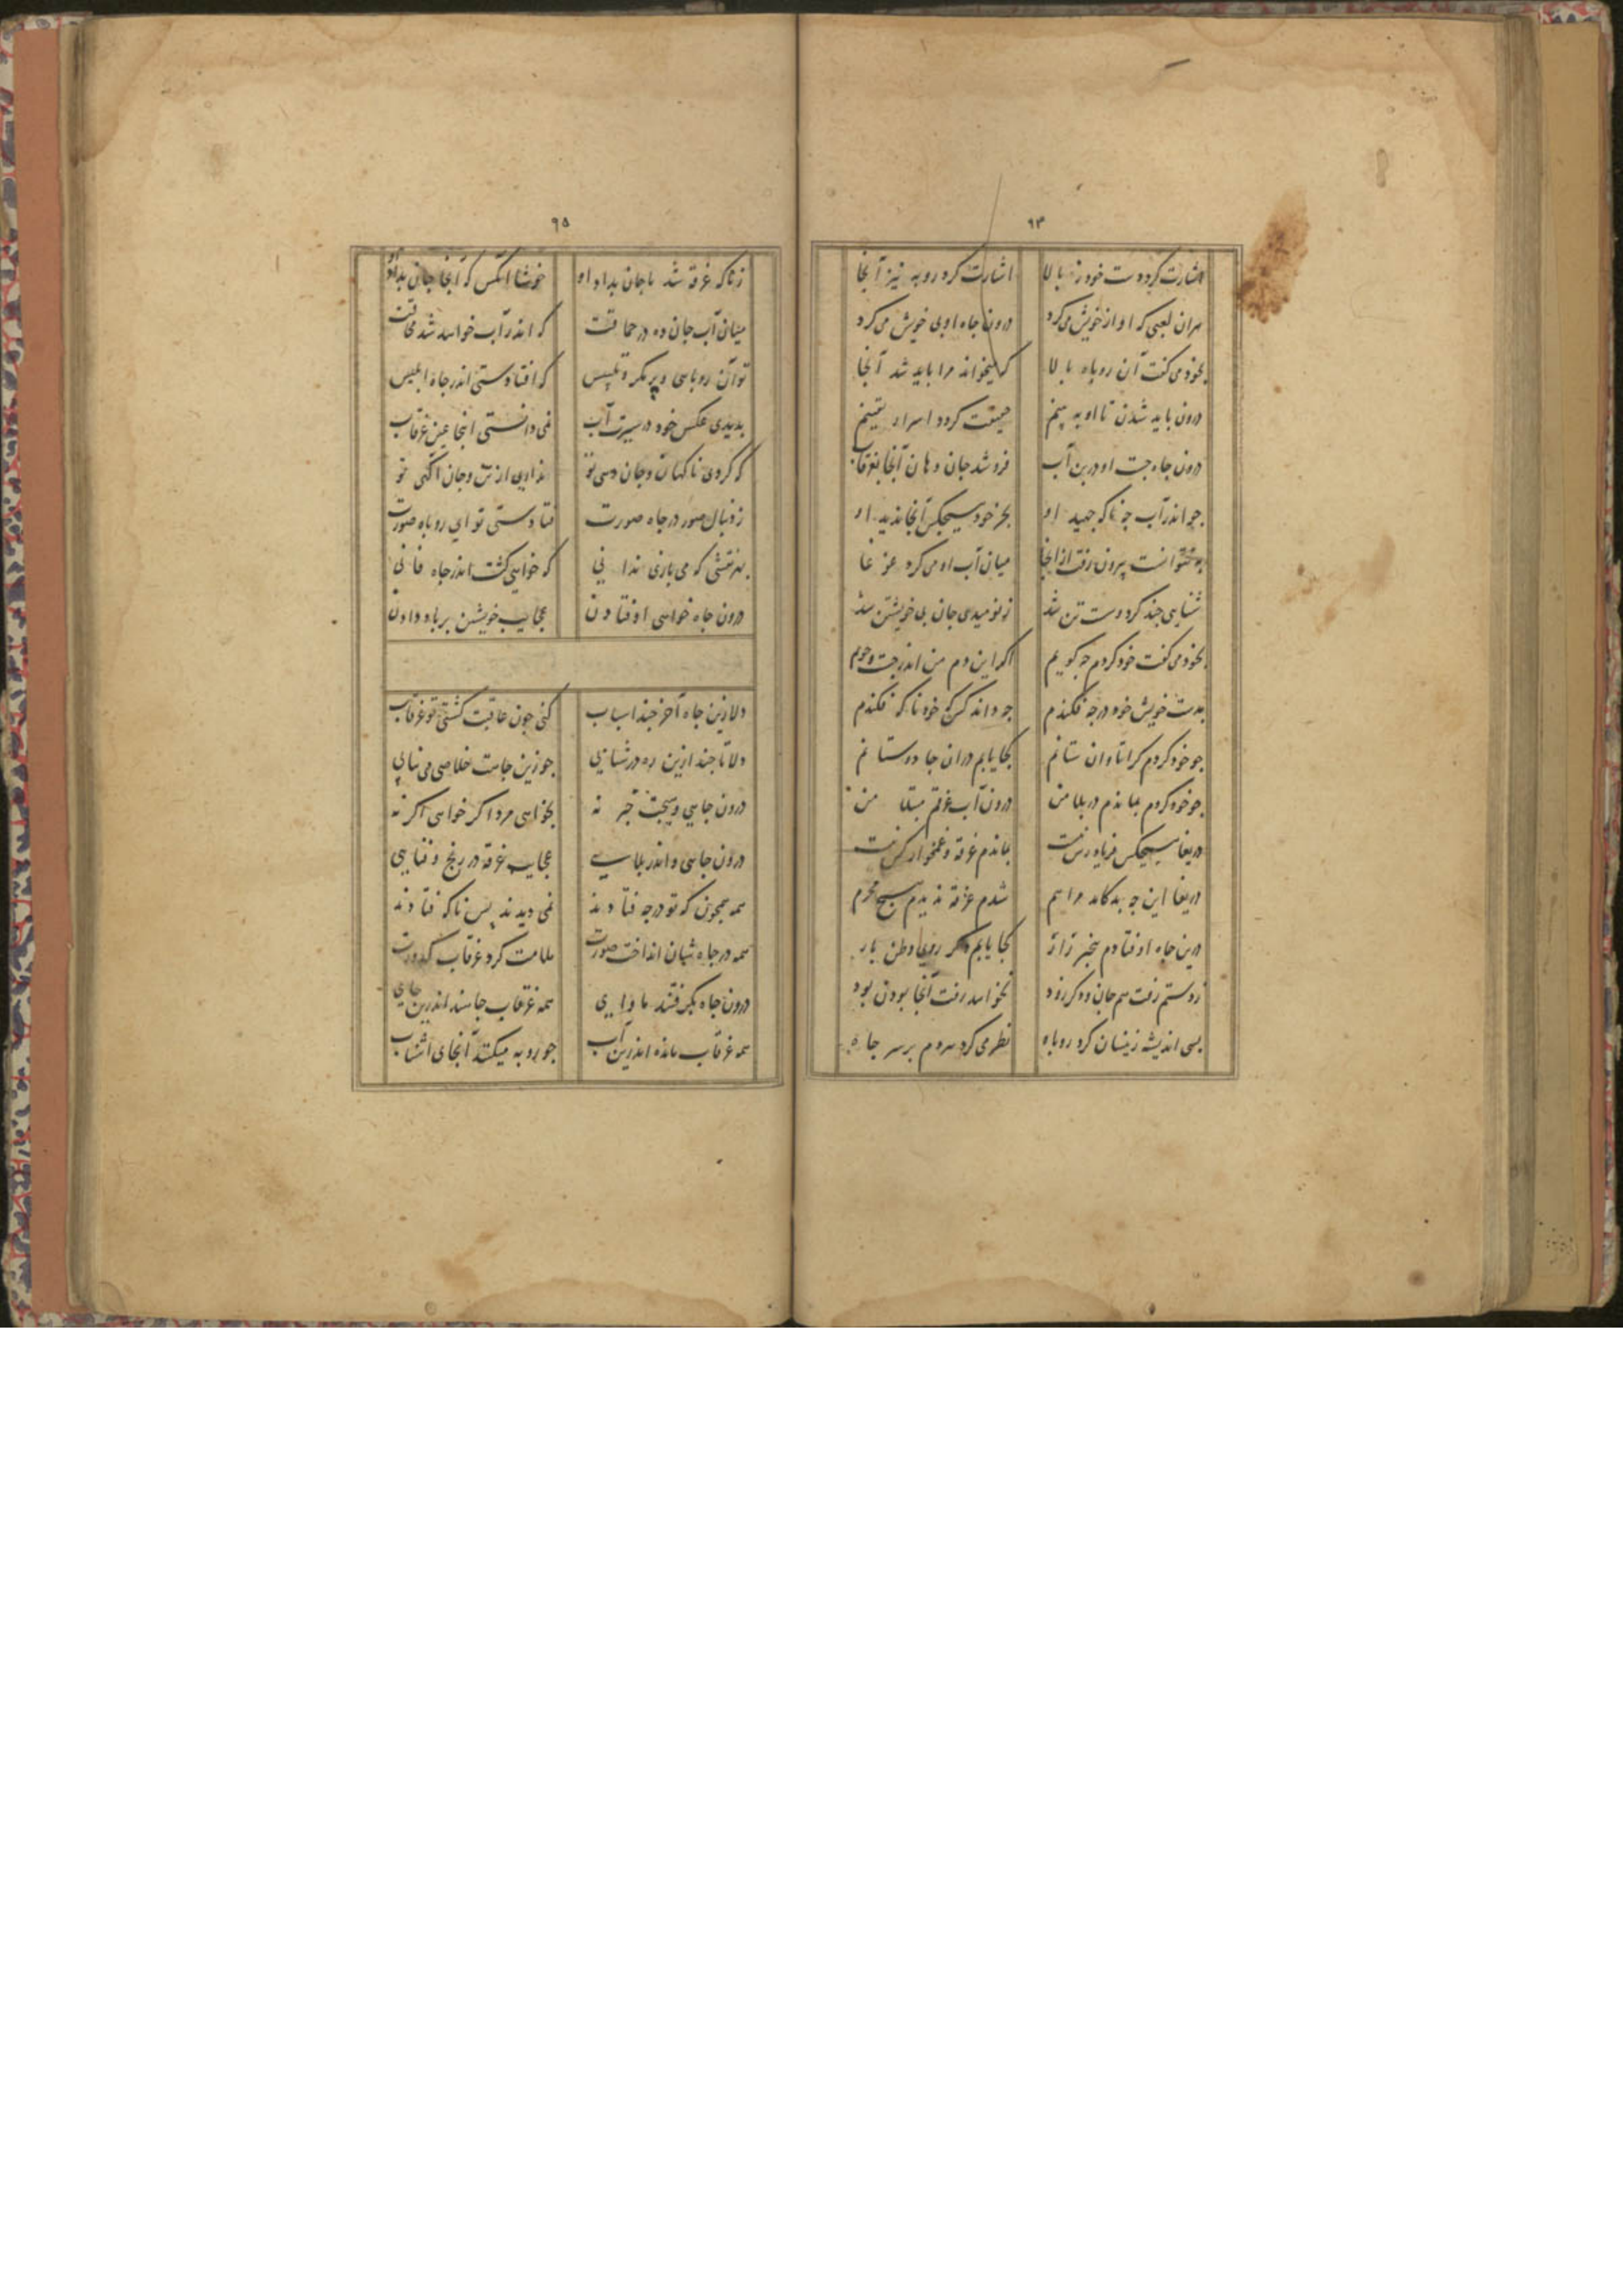 ۹۴
اشارت کرد دست خود ز بالا اشارت کرد روبه نیز آنجا
هران لعبی که او از خویش می کرد درون جاه اوبی خویش می کرد
بخود می کفت آن روباه بالا که میخواند مرا باید شد آنجا
درون باید شدن تا او به بینم حقیقت کردد اسرار یقینم
درون جاه جست او در بن آب فرو شد جان وهان آنجا بغرقاب
جو اندر آب جه ناکه جهید او بجز خود هیجکس آنجا ندید او
نتوانست بیرون رفت از آنجا میان آب او می کرد غوغا
شناهی جند کرد وست تن شد ز نومیدی جان بی خویشتن شد
بخود می کفت خود کردم جه کویم اکر این دم من اندر جست وجویم
بدست خویش خود در جه فکندم جو داند کس که خود ناکه فکندم
جو خود کردم کرا تاوان ستانم کجا یابم در آن جا دوستانم
جو خود کردم بماندم در بلا من درون آب غرقم مبتلا من
دریغا هیجکس فریادرس نیست بماندم غرقه وغمخوار کس نیست
دریغا این جه بد کامد مرا هم شدم غرقه ندیدم هیج محرم
درین جاه اوفتادم بیخبر زار کجا یابم دکر روی وطن یار
ز دستم رفت هم جان ودکر زود نخواهد رفت آنجا بودن بود
بسی اندیشه زینسان کرد روباه نظر می کرد هر دم بر سر جاه
۹۵
ز ناکه غرقه شد تا جان بداد او خوشا آنکس که آنجا جان بداد او
میان آب جان ده در حماقت که اندر آب خواهد شد محاقت
تو آن روباهی و پر مکر وتلبیس که افتادستی اندر جاه ابلیس
بدیدی عکس خود در سیرت آب نمی دانستی آنجا عین غرقاب
که کردی ناکهان وجان دهی تو نداری از تن وجان آکهی تو
ز دنبال صور در جاه صورت فتادستی تو ای روباه صورت
بهر نقشی که می بازی ندانی که خواهی کشت اندر جاه فانی
درون جاه خواهی اوفتادن عجایب خویشتن بر باد دادن
دلا زین جاه آخر جند اسباب کنی جون عاقبت کشتی تو غرقاب
دلا تا جند ازین ره در شتابی جو زین جاهت خلاصی می نیابی
درون جاهی وهیجت خبر نه بخواهی مرد اکر خواهی اکر نه
درون جاهی واندر بلایی عجایب غرقه در رنج وفنایی
همه همجون که تو در جه فتادند نمی دیدند بس ناکه فتادند
همه در جاه شان انداخت صورت ملامت کرد غرقاب کدورت
درون جاه بکرفتند ماوایی همه غرقاب جاهند اندرین جای
همه غرقاب مانده اندرین آب جو روبه میکنند آنجای اشتاب